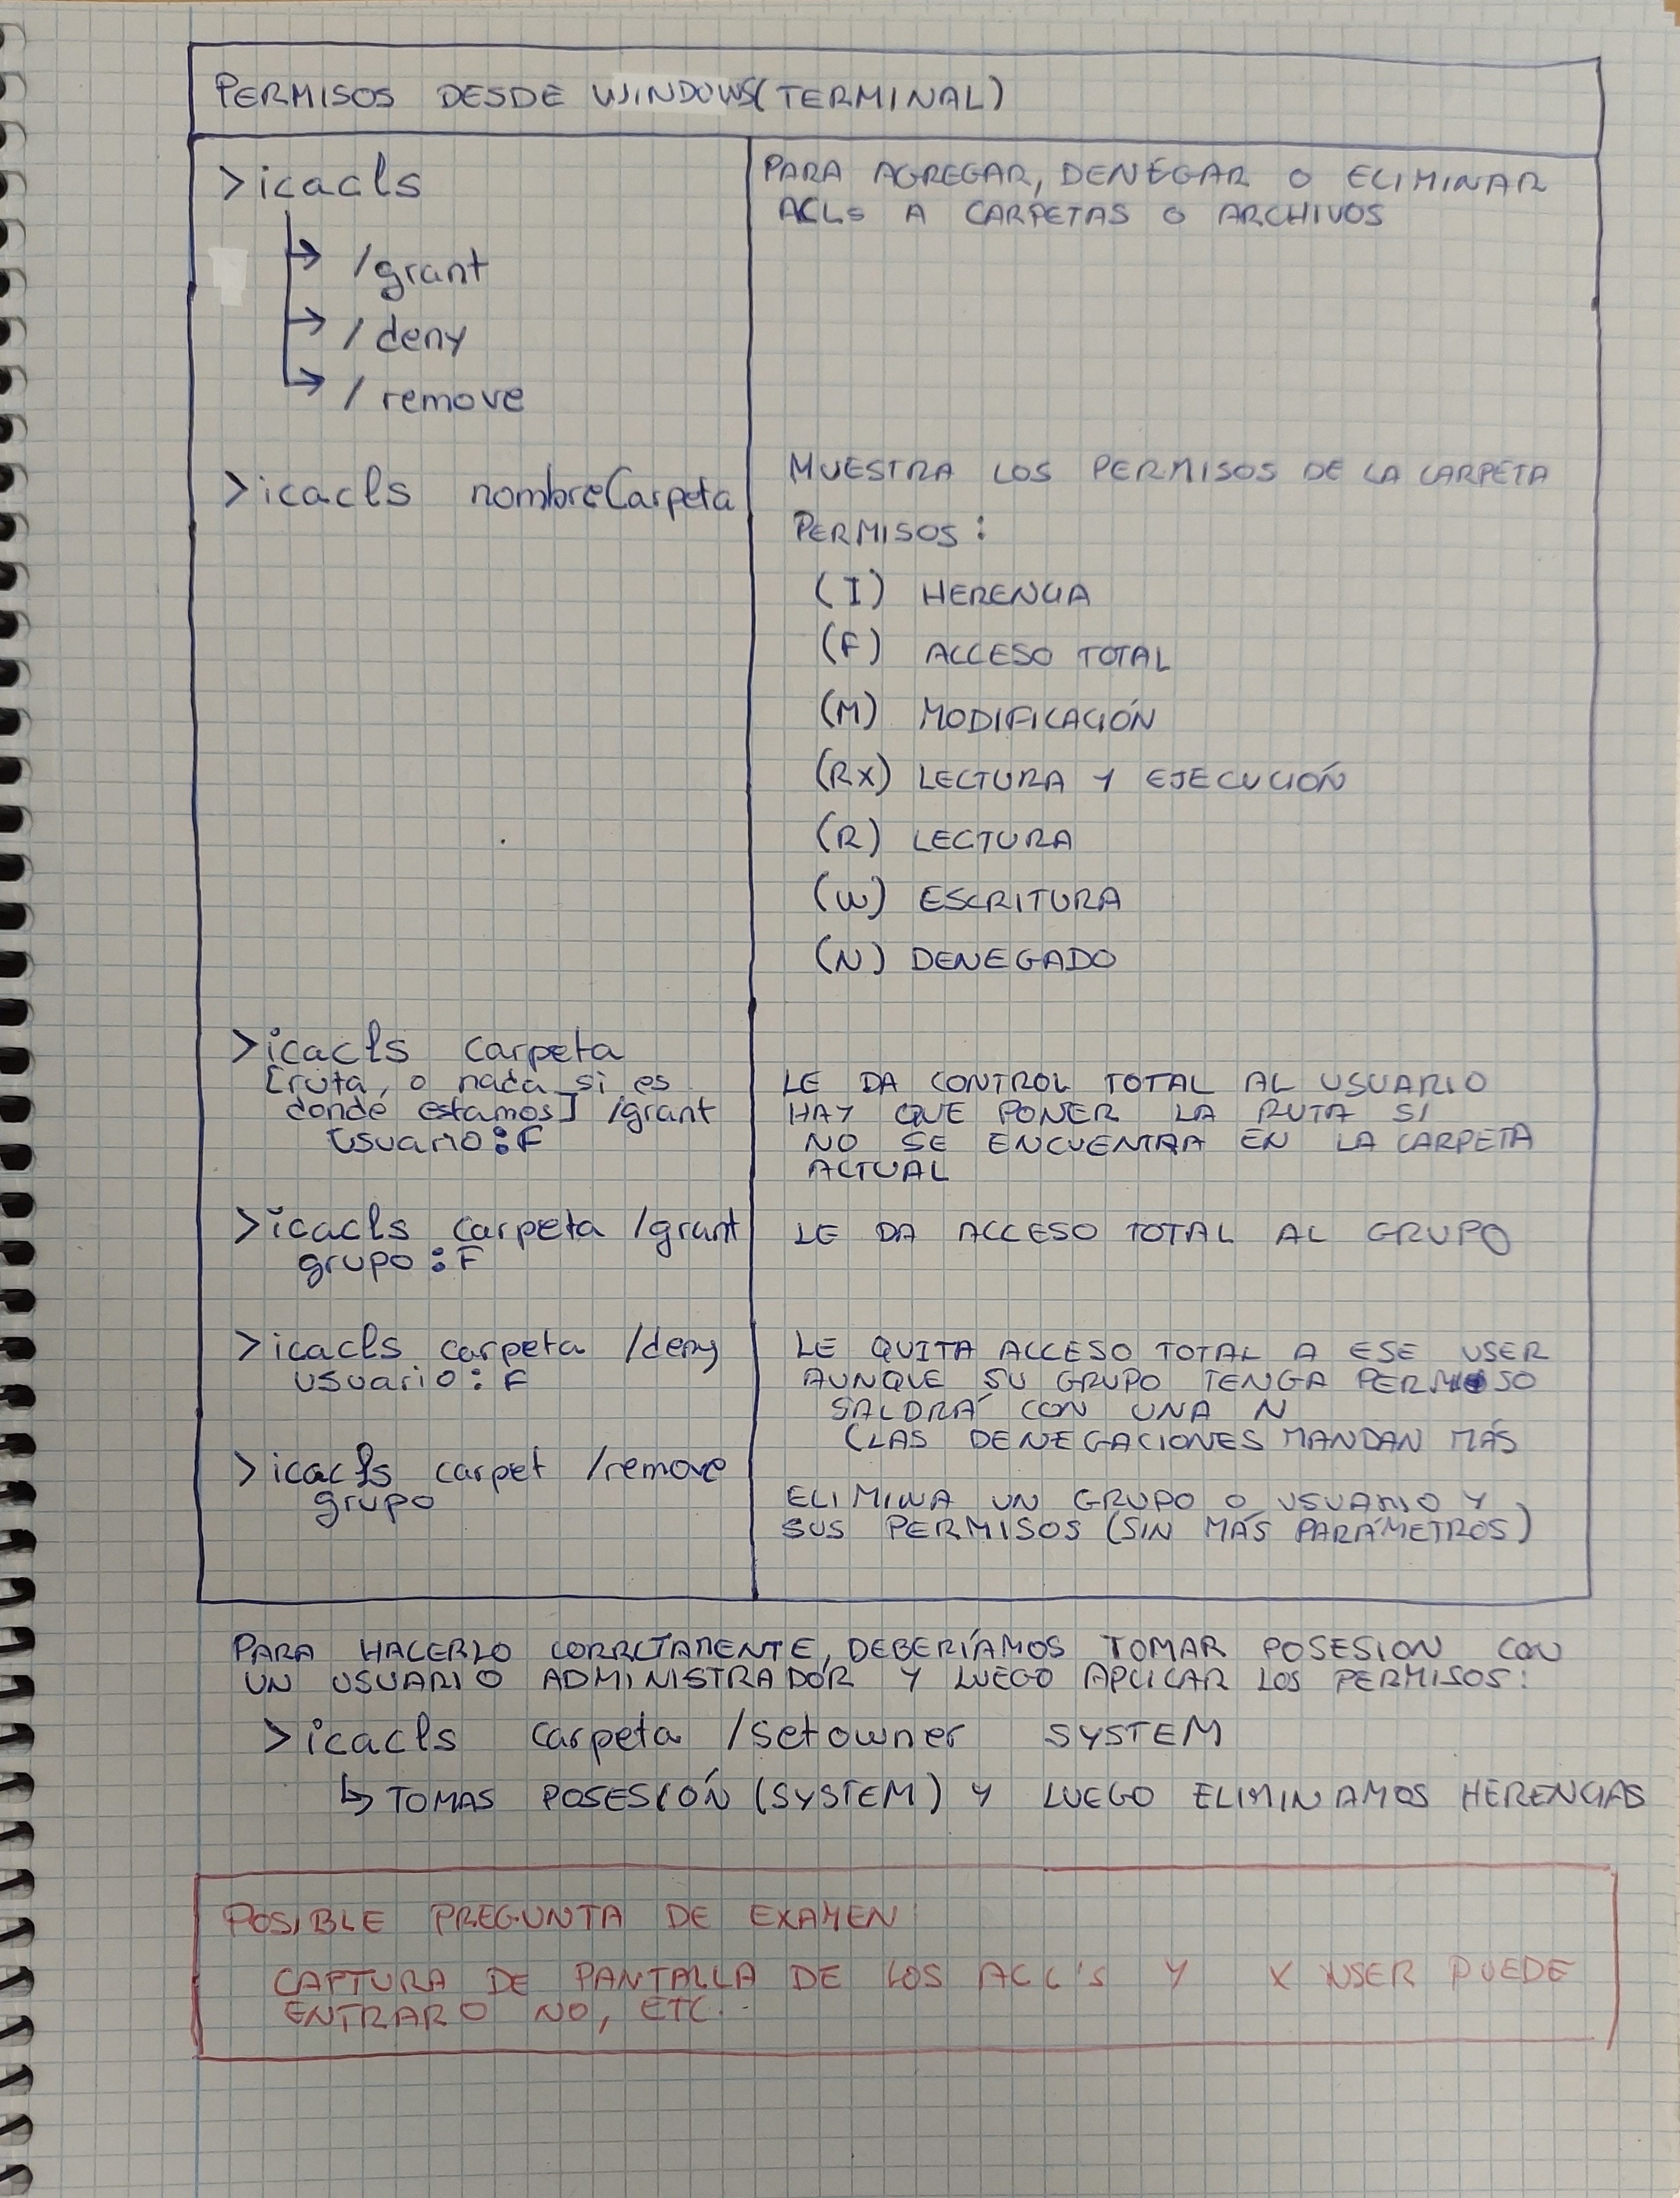 PERMISOS DESDE WINDOWS(TERMINAL)
>icacls
/grant
/deny
/remove
PARA AGREGAR, DENEGAR O ELIMINAR
ACLs A CARPETAS O ARCHIVOS
>icacls nombreCarpeta
MUESTRA LOS PERMISOS DE LA CARPETA
PERMISOS:
(I) HERENCIA
(F) ACCESO TOTAL
(M) MODIFICACIÓN
(RX) LECTURA Y EJECUCIÓN
(R) LECTURA
(W) ESCRITURA
(N) DENEGADO
>icacls carpeta
[ruta, o nada si es
donde estamos] /grant
usuario:F
LE DA CONTROL TOTAL AL USUARIO
HAY QUE PONER LA RUTA SI
NO SE ENCUENTRA EN LA CARPETA
ACTUAL
>icacls carpeta /grant
grupo:F
LE DA ACCESO TOTAL AL GRUPO
>icacls carpeta /deny
usuario:F
LE QUITA ACCESO TOTAL A ESE USER
AUNQUE SU GRUPO TENGA PERMISO
SALDRÁ CON UNA N
(LAS DENEGACIONES MANDAN MÁS
>icacls carpet /remove
grupo
ELIMINA UN GRUPO O USUARIO Y
SUS PERMISOS (SIN MÁS PARÁMETROS)
PARA HACERLO CORRCTAMENTE, DEBERÍAMOS TOMAR POSESION CON
UN USUARIO ADMINISTRADOR Y LUEGO APLICAR LOS PERMISOS:
>icacls carpeta /setowner SYSTEM
↳ TOMAS POSESIÓN (SYSTEM) Y LUEGO ELIMINAMOS HERENCIAS
POSIBLE PREGUNTA DE EXAMEN
CAPTURA DE PANTALLA DE LOS ACL's Y X USER PUEDE
ENTRAR O NO, ETC.